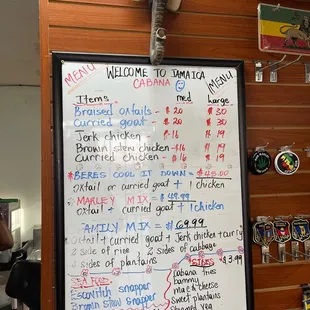 MENU
WELCOME TO JAMAICA
CABANA
MENU
Items med Large
Braised oxtails - $ 20 $ 30
Curried goat - $ 20 $ 30
Jerk chicken - $16 $ 19
Brown stew chicken - $16 $ 19
Curried chicken - $ 16 $ 19
BERES COOL IT DOWN = $45.00
oxtail or curried goat + 1 chicken
MARLEY MIX = $49.99
oxtail + curried goat + 1 chicken
FAMILY MIX = $69.99
oxtail + curried goat + Jerk chicken +
2 side of rice 2 sides of cabbage
sides of plantains
Sides $3.99
Escovitch snapper
Brown stew snapper
cabana fries
bammy
mac & cheese
sweet plantains